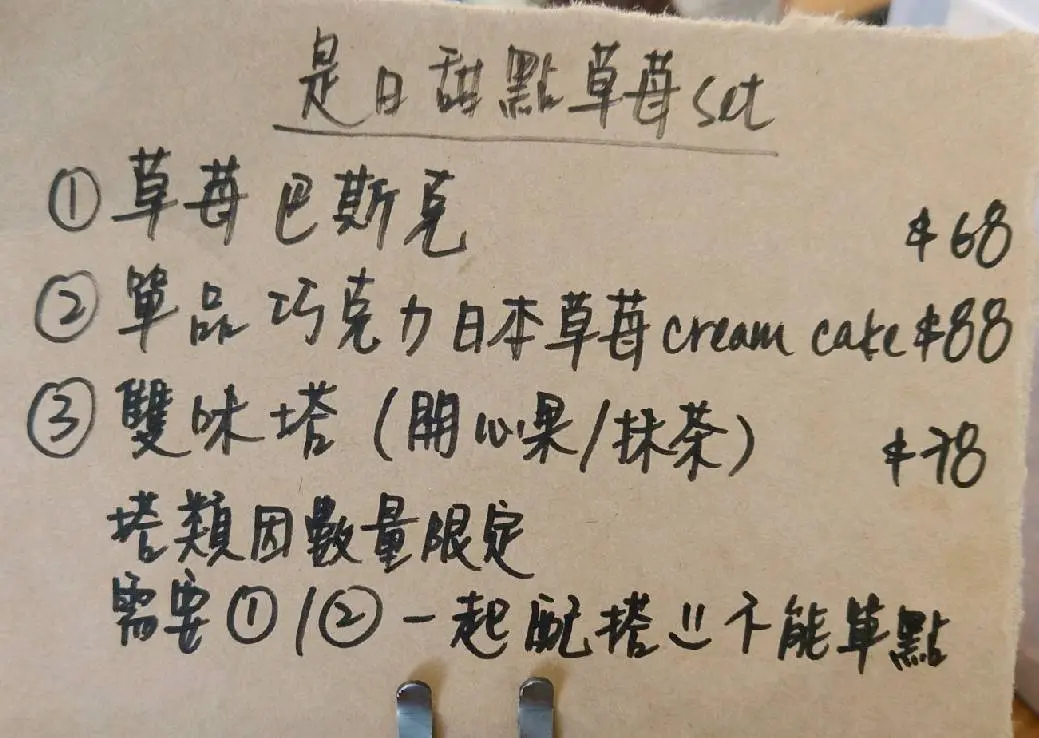 是日甜點草莓set
① 草莓巴斯克 $68
② 單品巧克力日本草莓cream cake $88
③ 雙味塔(開心果/抹茶) $78
塔類因數量限定
需要①/②一起配搭!!不能單點